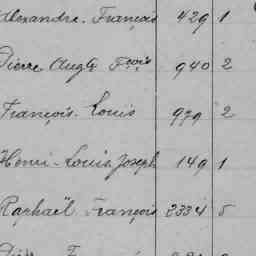 Alexandre François 429 1
Pierre Aug. Fçois 940 2
François-Louis 979 2
Henri-Louis Joseph 149 1
Raphaël François 2334 5